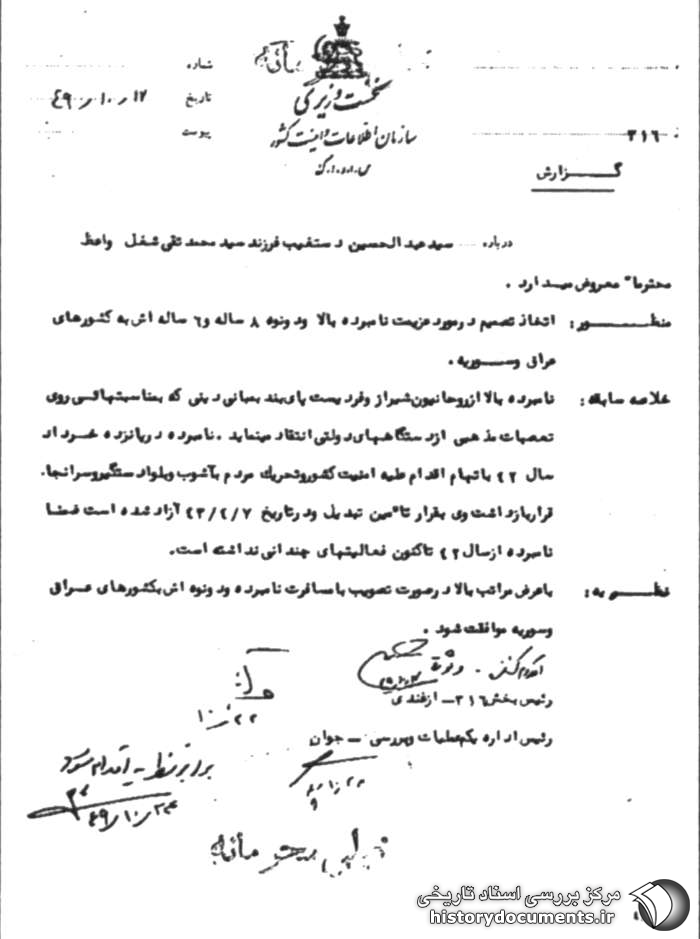 شماره
نخست وزیری
تاریخ ۴۹٫۱۰٫۱۲
سازمان اطلاعات و امنیت کشور
پیوست
س.ا.و.ا.ک
۳۱۶
گـــزارش
درباره سید عبدالحسین دستغیب فرزند سید محمد تقی شغل واعظ
محترما" معروض میدارد .
منظـــور: اتخاذ تصمیم در مورد عزیمت نامبرده بالا و دو نوه ۸ ساله و ۶ ساله اش به کشورهای
عراق و سوریه .
خلاصه سابقه: نامبرده بالا از روحانیون شیراز و فردیست پای بند بمبانی دینی که بمناسبتهائی روی
تعصبات مذهبی از دستگاههای دولتی انتقاد مینماید . نامبرده در پانزده خرداد
سال ۴۲ باتهام اقدام علیه امنیت کشور و تحریک مردم بآشوب و بلوا دستگیر و سرانجام
قرار بازداشت وی بقرار تأمین تبدیل و در تاریخ ۴۳/۴/۷ آزاد شده است ضمنا
نامبرده از سال ۴۲ تاکنون فعالیتهای چندانی نداشته است.
نظـــریه: با عرض مراتب بالا در صورت تصویب با مسافرت نامبرده و دو نوه اش بکشورهای عراق
و سوریه موافقت شود .
رئیس بخش ۳۱۶ـ ازغندی
رئیس اداره یکم عملیات و بررسی ـ جوان
برابر نظریه اقدام شود
۴۹٫۱۰٫۲۴
خیلی محرمانه
مرکز بررسی اسناد تاریخی
historydocuments.ir